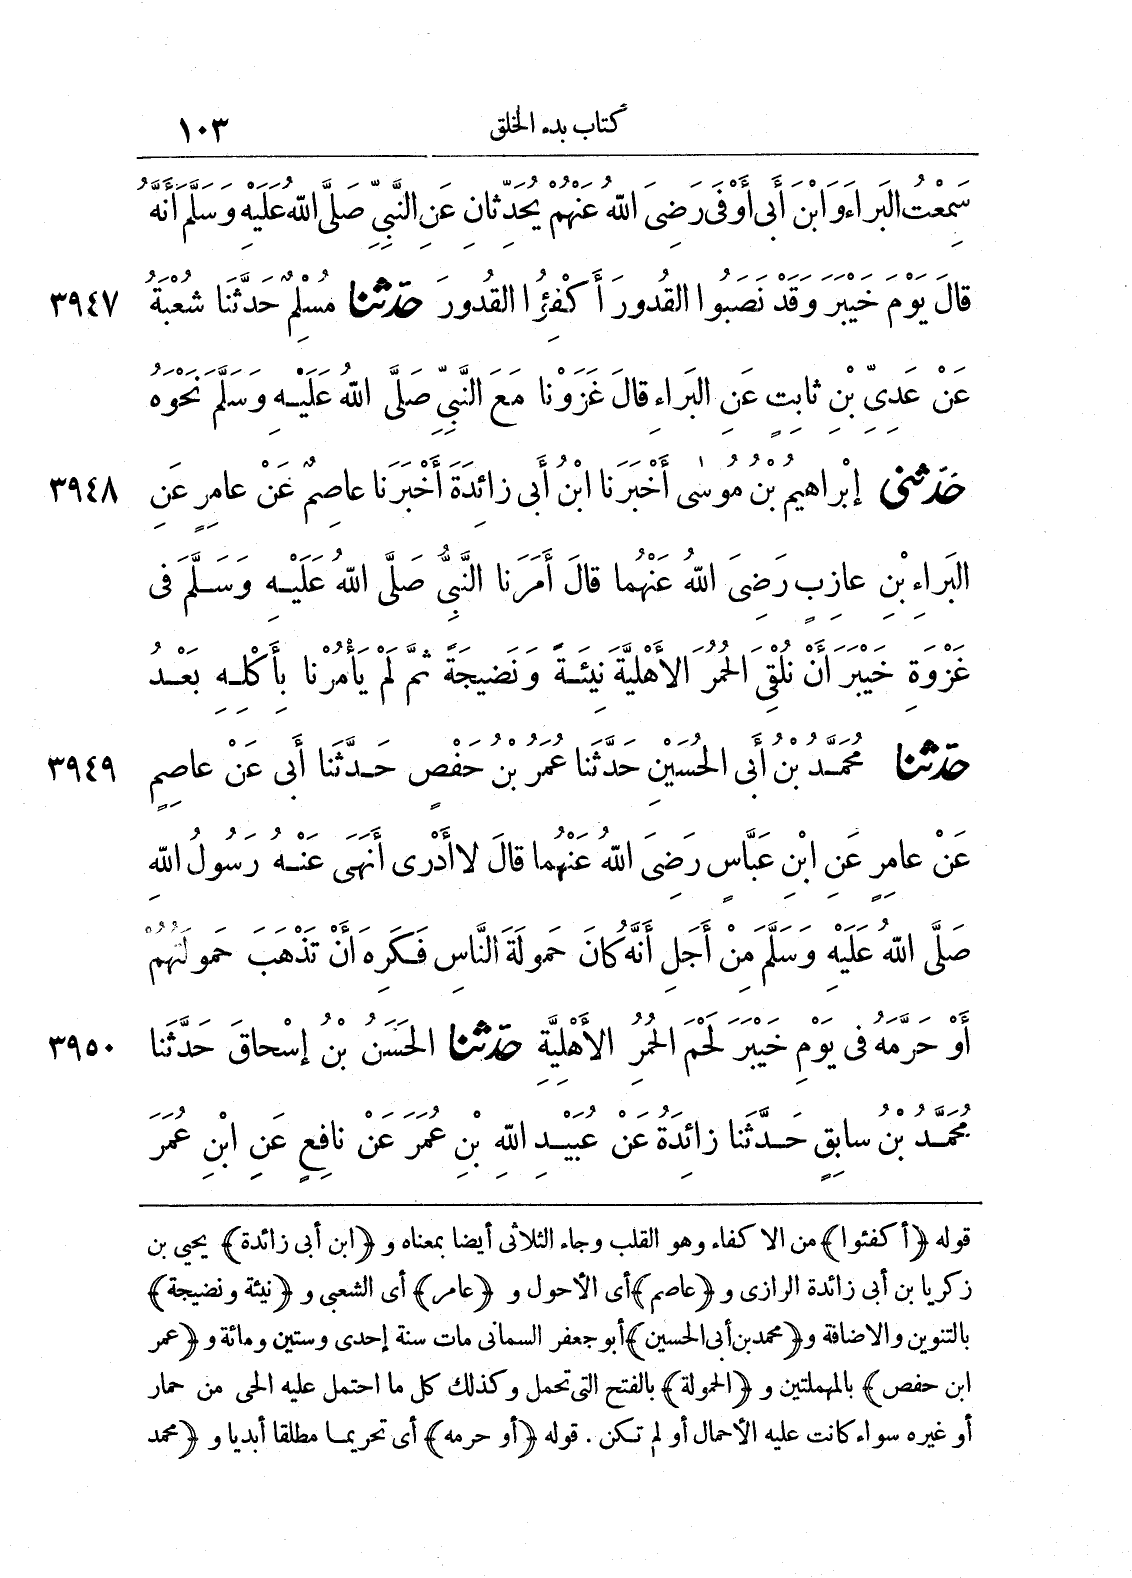 كتاب بدء الخلق ١٠٣
سَمِعْتُ البَرَاءَ وَابْنَ أَبِي أَوْفَى رَضِيَ اللَّهُ عَنْهُمْ يُحَدِّثَانِ عَنِ النَّبِيِّ صَلَّى اللَّهُ عَلَيْهِ وَسَلَّمَ أَنَّهُ
قَالَ يَوْمَ خَيْبَرَ وَقَدْ نَصَبُوا القُدُورَ أَكْفِئُوا القُدُورَ حَدَّثَنَا مُسْلِمٌ حَدَّثَنَا شُعْبَةُ ٣٩٤٧
عَنْ عَدِيِّ بْنِ ثَابِتٍ عَنِ البَرَاءِ قَالَ غَزَوْنَا مَعَ النَّبِيِّ صَلَّى اللَّهُ عَلَيْهِ وَسَلَّمَ نَحْوَهُ
حَدَّثَنِى إِبْرَاهِيمُ بْنُ مُوسَى أَخْبَرَنَا ابْنُ أَبِى زَائِدَةَ أَخْبَرَنَا عَاصِمٌ عَنْ عَامِرٍ عَنِ ٣٩٤٨
البَرَاءِ بْنِ عَازِبٍ رَضِىَ اللَّهُ عَنْهُمَا قَالَ أَمَرَنَا النَّبِيُّ صَلَّى اللَّهُ عَلَيْهِ وَسَلَّمَ فِى
غَزْوَةِ خَيْبَرَ أَنْ نُلْقِىَ الحُمُرَ الأَهْلِيَّةَ نِيئَةً وَنَضِيجَةً ثُمَّ لَمْ يَأْمُرْنَا بِأَكْلِهِ بَعْدُ
حَدَّثَنَا مُحَمَّدُ بْنُ أَبِى الحُسَيْنِ حَدَّثَنَا عُمَرُ بْنُ حَفْصٍ حَدَّثَنَا أَبِى عَنْ عَاصِمٍ ٣٩٤٩
عَنْ عَامِرٍ عَنِ ابْنِ عَبَّاسٍ رَضِىَ اللَّهُ عَنْهُمَا قَالَ لاَ أَدْرِى أَنَهَى عَنْهُ رَسُولُ اللَّهِ
صَلَّى اللَّهُ عَلَيْهِ وَسَلَّمَ مِنْ أَجَلِ أَنَّهُ كَانَ حَمُولَةَ النَّاسِ فَكَرِهَ أَنْ تَذْهَبَ حَمُولَتُهُمْ
أَوْ حَرَّمَهُ فِى يَوْمِ خَيْبَرَ لَحْمَ الحُمُرِ الأَهْلِيَّةِ حَدَّثَنَا الحَسَنُ بْنُ إِسْحَاقَ حَدَّثَنَا ٣٩٥٠
مُحَمَّدُ بْنُ سَابِقٍ حَدَّثَنَا زَائِدَةُ عَنْ عُبَيْدِ اللَّهِ بْنِ عُمَرَ عَنْ نَافِعٍ عَنِ ابْنِ عُمَرَ
قوله ﴿أكفئوا﴾ من الاكفاء وهو القلب وجاء الثلاثى أيضا بمعناه و ﴿ابن أبى زائدة﴾ يحيى بن
زكريا بن أبى زائدة الرازى و ﴿عاصم﴾ أى الأحول و ﴿عامر﴾ أى الشعبى و ﴿نيئة ونضيجة﴾
بالتنوين والاضافة و ﴿محمد بن أبى الحسين﴾ أبو جعفر السمانى مات سنة إحدى وستين ومائة و ﴿عمر
ابن حفص﴾ بالمهملتين و ﴿الحمولة﴾ بالفتح التى تحمل وكذلك كل ما احتمل عليه الحى من حمار
أو غيره سواء كانت عليه الأحمال أو لم تكن . قوله ﴿أو حرمه﴾ أى تحريما مطلقا أبديا و ﴿محمد